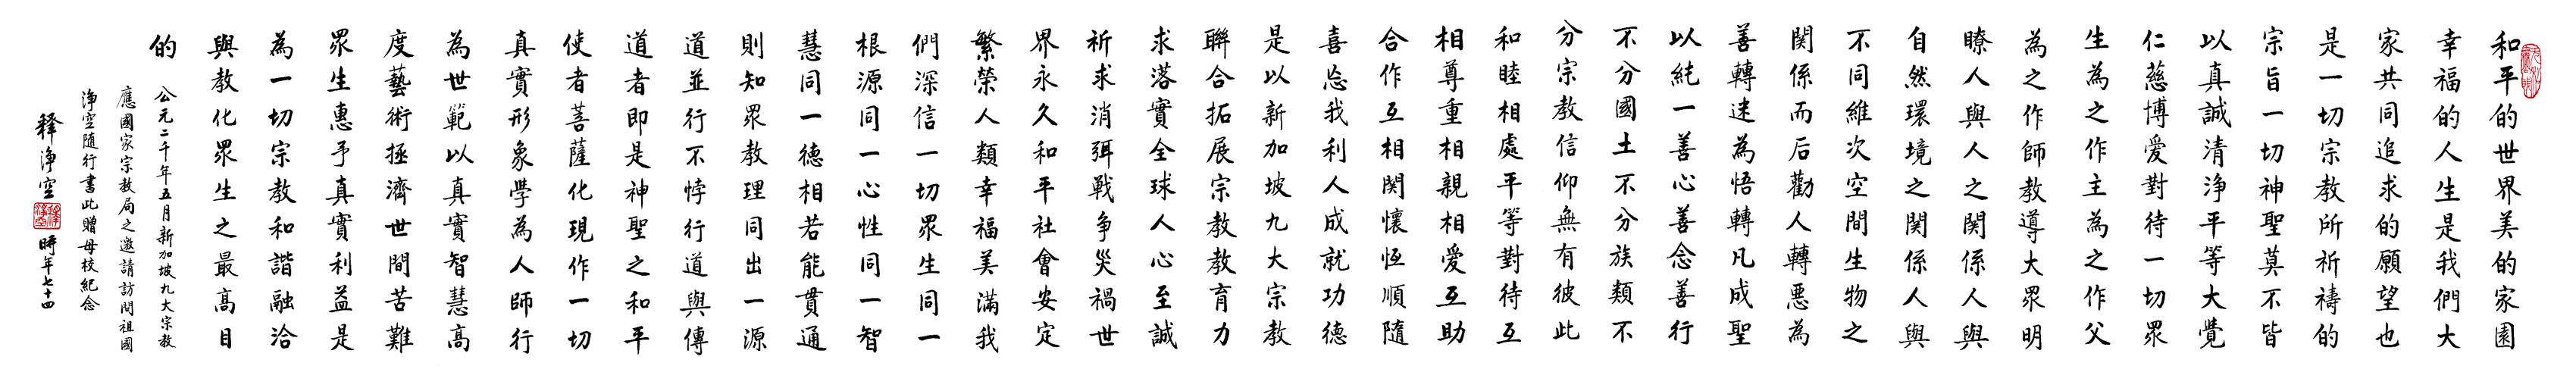 和平的世界美的家園
幸福的人生是我們大
家共同追求的願望也
是一切宗教所祈禱的
宗旨一切神聖莫不皆
以真誠清淨平等大覺
仁慈博愛對待一切眾
生為之作主為之作父
為之作師教導大眾明
瞭人與人之関係人與
自然環境之関係人與
不同維次空間生物之
関係而后勸人轉惡為
善轉迷為悟轉凡成聖
以純一善心善念善行
不分國土不分族類不
分宗教信仰無有彼此
和睦相處平等對待互
相尊重相親相愛互助
合作互相関懷恆順隨
喜忘我利人成就功德
是以新加坡九大宗教
聯合拓展宗教教育力
求落實全球人心至誠
祈求消弭戰争災禍世
界永久和平社會安定
繁榮人類幸福美滿我
們深信一切眾生同一
根源同一心性同一智
慧同一德相若能貫通
則知眾教理同出一源
道並行不悖行道與傳
道者即是神聖之和平
使者菩薩化現作一切
真實形象學為人師行
為世範以真實智慧高
度藝術拯濟世間苦難
眾生惠予真實利益是
為一切宗教和諧融洽
與教化眾生之最高目
的 公元二千年五月新加坡九大宗教
應國家宗教局之邀請訪問祖國
淨空隨行書此贈母校紀念
釋淨空 時年七十四